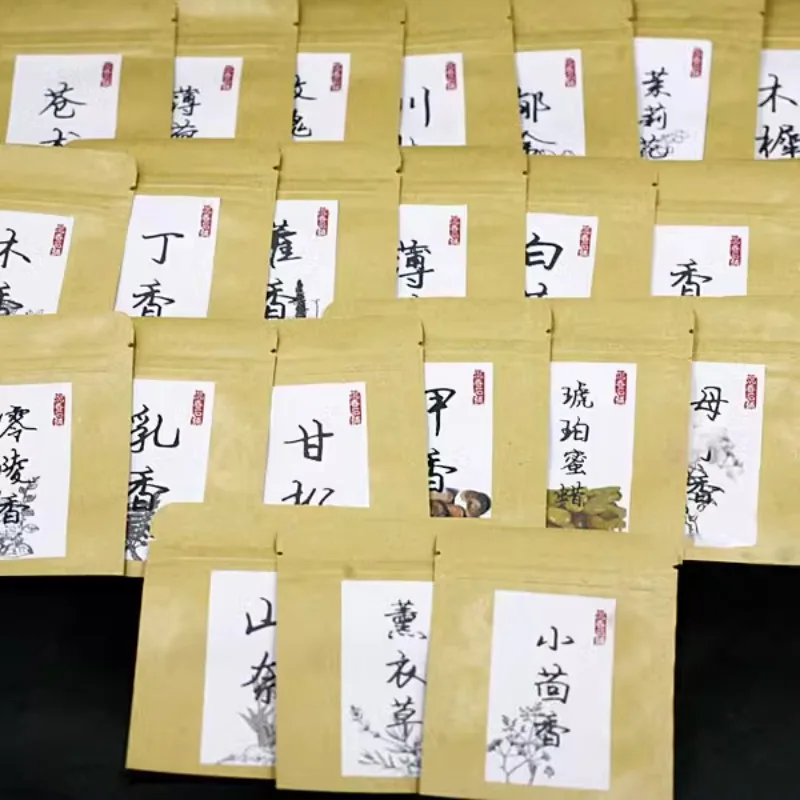 苍术
薄荷
玫瑰
川
郁金
茉莉花
木樨
木香
丁香
藿香
薄
白
香
零陵香
乳香
甘松
甲香
琥珀蜜蜡
母丁香
山奈
薰衣草
小茴香